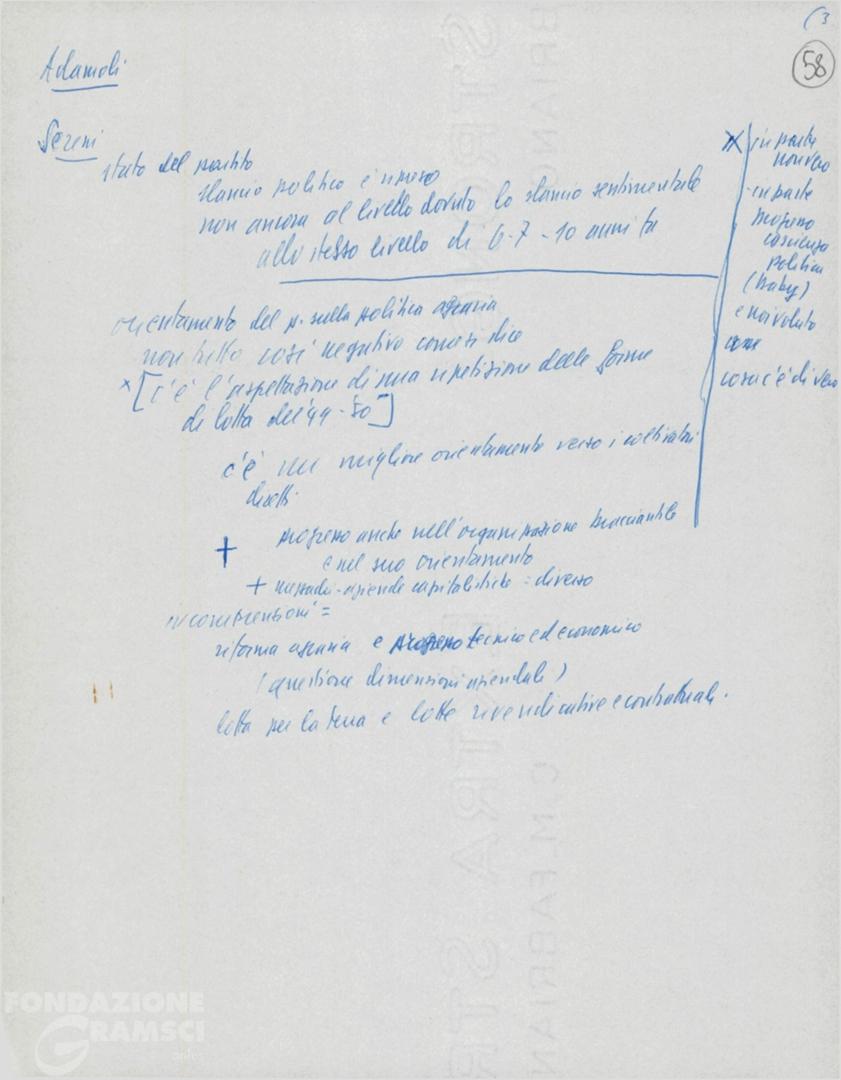 (3
58
Adamoli
Sereni
stato del partito
slancio politico è
non ancora al livello dovuto lo slancio sentimentale
allo stesso livello di 6-7-10 anni fa
orientamento del p. sulla politica agraria
non tutto così negativo come si dice
x [c'è l'aspettazione di una ripetizione delle forme
di lotta del '49-50]
c'è un migliore orientamento verso i coltivatori
diretti
+ progresso anche nell'organizzazione bracciantile
e nel suo orientamento
+ mezzadri-aziende capitalistiche = diverso
incomprensioni =
riforma agraria e progresso tecnico ed economico
(questione dimensioni aziendali)
lotta per la terra e lotte rivendicative e contrattuali.
X in parte
non vero
- in parte
progresso
coscienza
politica
(baby)
e
come
cosa c'è di vero
FONDAZIONE
GRAMSCI
onlus
BRIANO
STRONG
EXTRA STR
C.M.FABRIAN